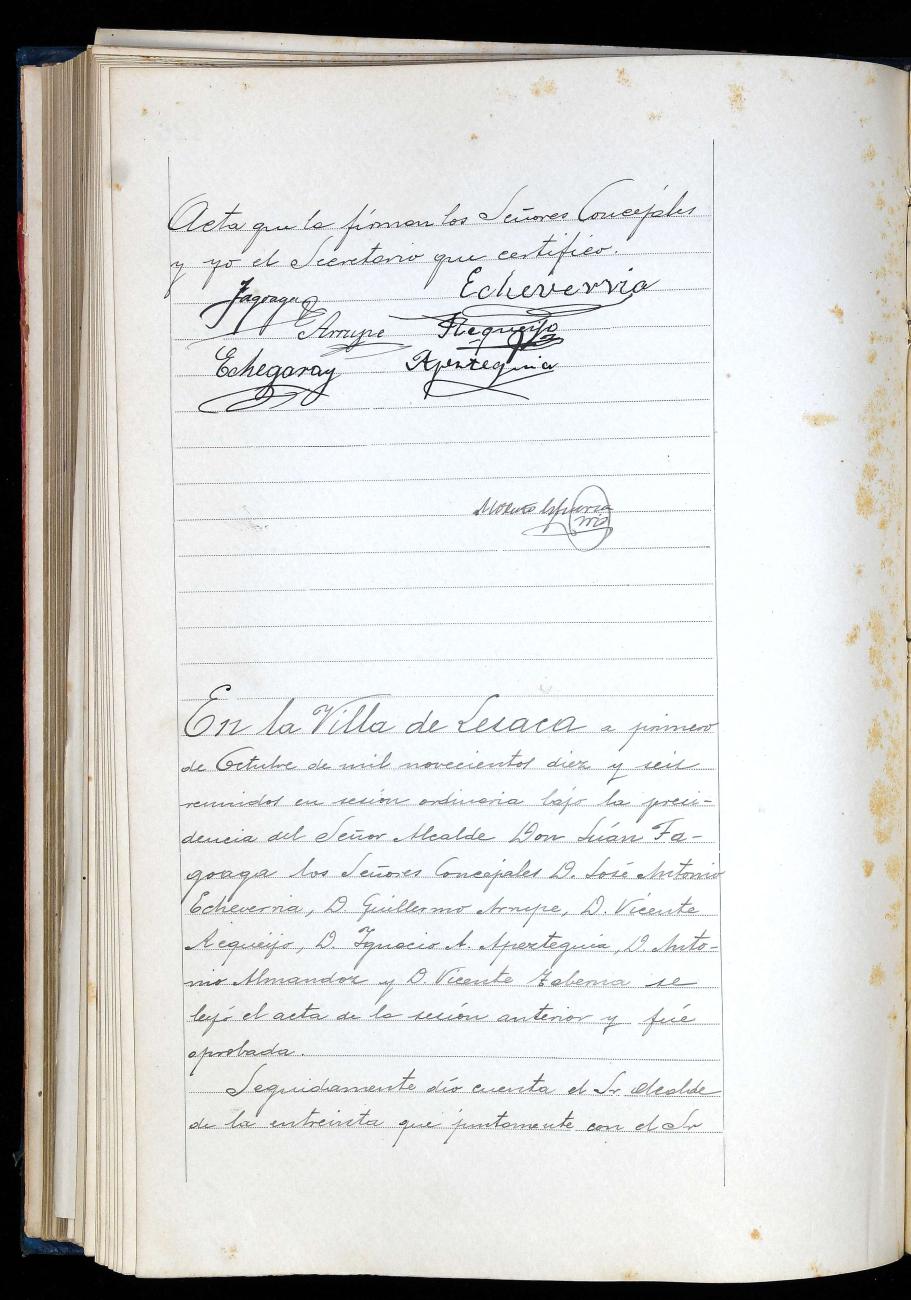 Acta que la firman los Señores Concejales
y yo el Secretario que certifico.
Fagoaga Echeverria
Arrupe Requeijo
Echegaray Apezteguia
En la Villa de Lesaca a primero
de Octubre de mil novecientos diez y seis
reunidos en sesión ordinaria bajo la presi-
dencia del Señor Alcalde Don Juán Fa-
goaga los Señores Concejales D. José Antonio
Echeverria, D. Guillermo Arrupe, D. Vicente
Requeijo, D. Ignacio A. Apezteguia, D. Anto-
nio Almandoz y D. Vicente Taberna se
leyó el acta de la sesión anterior y fué
aprobada.
Seguidamente dió cuenta el Sr. Alcalde
de la entrevista que juntamente con el Sr